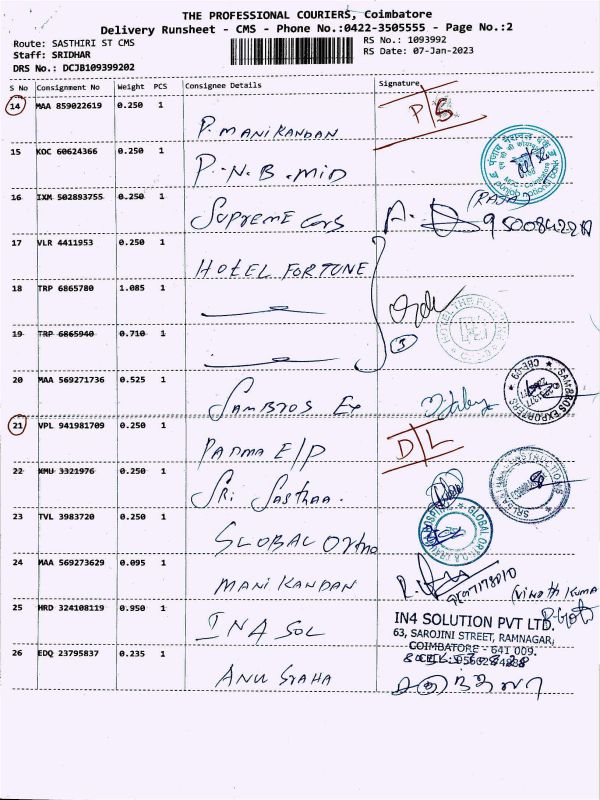 THE PROFESSIONAL COURIERS, Coimbatore
Delivery Runsheet - CMS - Phone No.:0422-3505555 - Page No.:2
Route: SASTHIRI ST CMS
Staff: SRIDHAR
DRS No.: DCJB109399202
RS No.: 1093992
RS Date: 07-Jan-2023
S No Consignment No Weight PCS Consignee Details Signature
14 MAA 859022619 0.250 1 P. MANIKANDAN P/S
15 KOC 60624366 0.250 1 P.N.B. MID
punjab national bank
16 IXM 502893755 0.250 1 SUPREME Cars (RAJA)
17 VLR 4411953 0.250 1 HOTEL FORTUNE
18 TRP 6865780 1.085 1
19 TRP 6865940 0.710 1
3
20 MAA 569271736 0.525 1 SAMBROS Ex
SAM&BROS EXPORTERS
21 VPL 941981709 0.250 1 PADMA E/P D/L
22 KMU 3321976 0.250 1 SRI Sasthaa.
23 TVL 3983720 0.250 1 GLOBAL Ortho
24 MAA 569273629 0.095 1 MANIKANDAN
25 HRD 324108119 0.950 1 INA SOL
IN4 SOLUTION PVT LTD.
63, SAROJINI STREET, RAMNAGAR,
COIMBATORE - 641 009.
26 EDQ 23795837 0.235 1